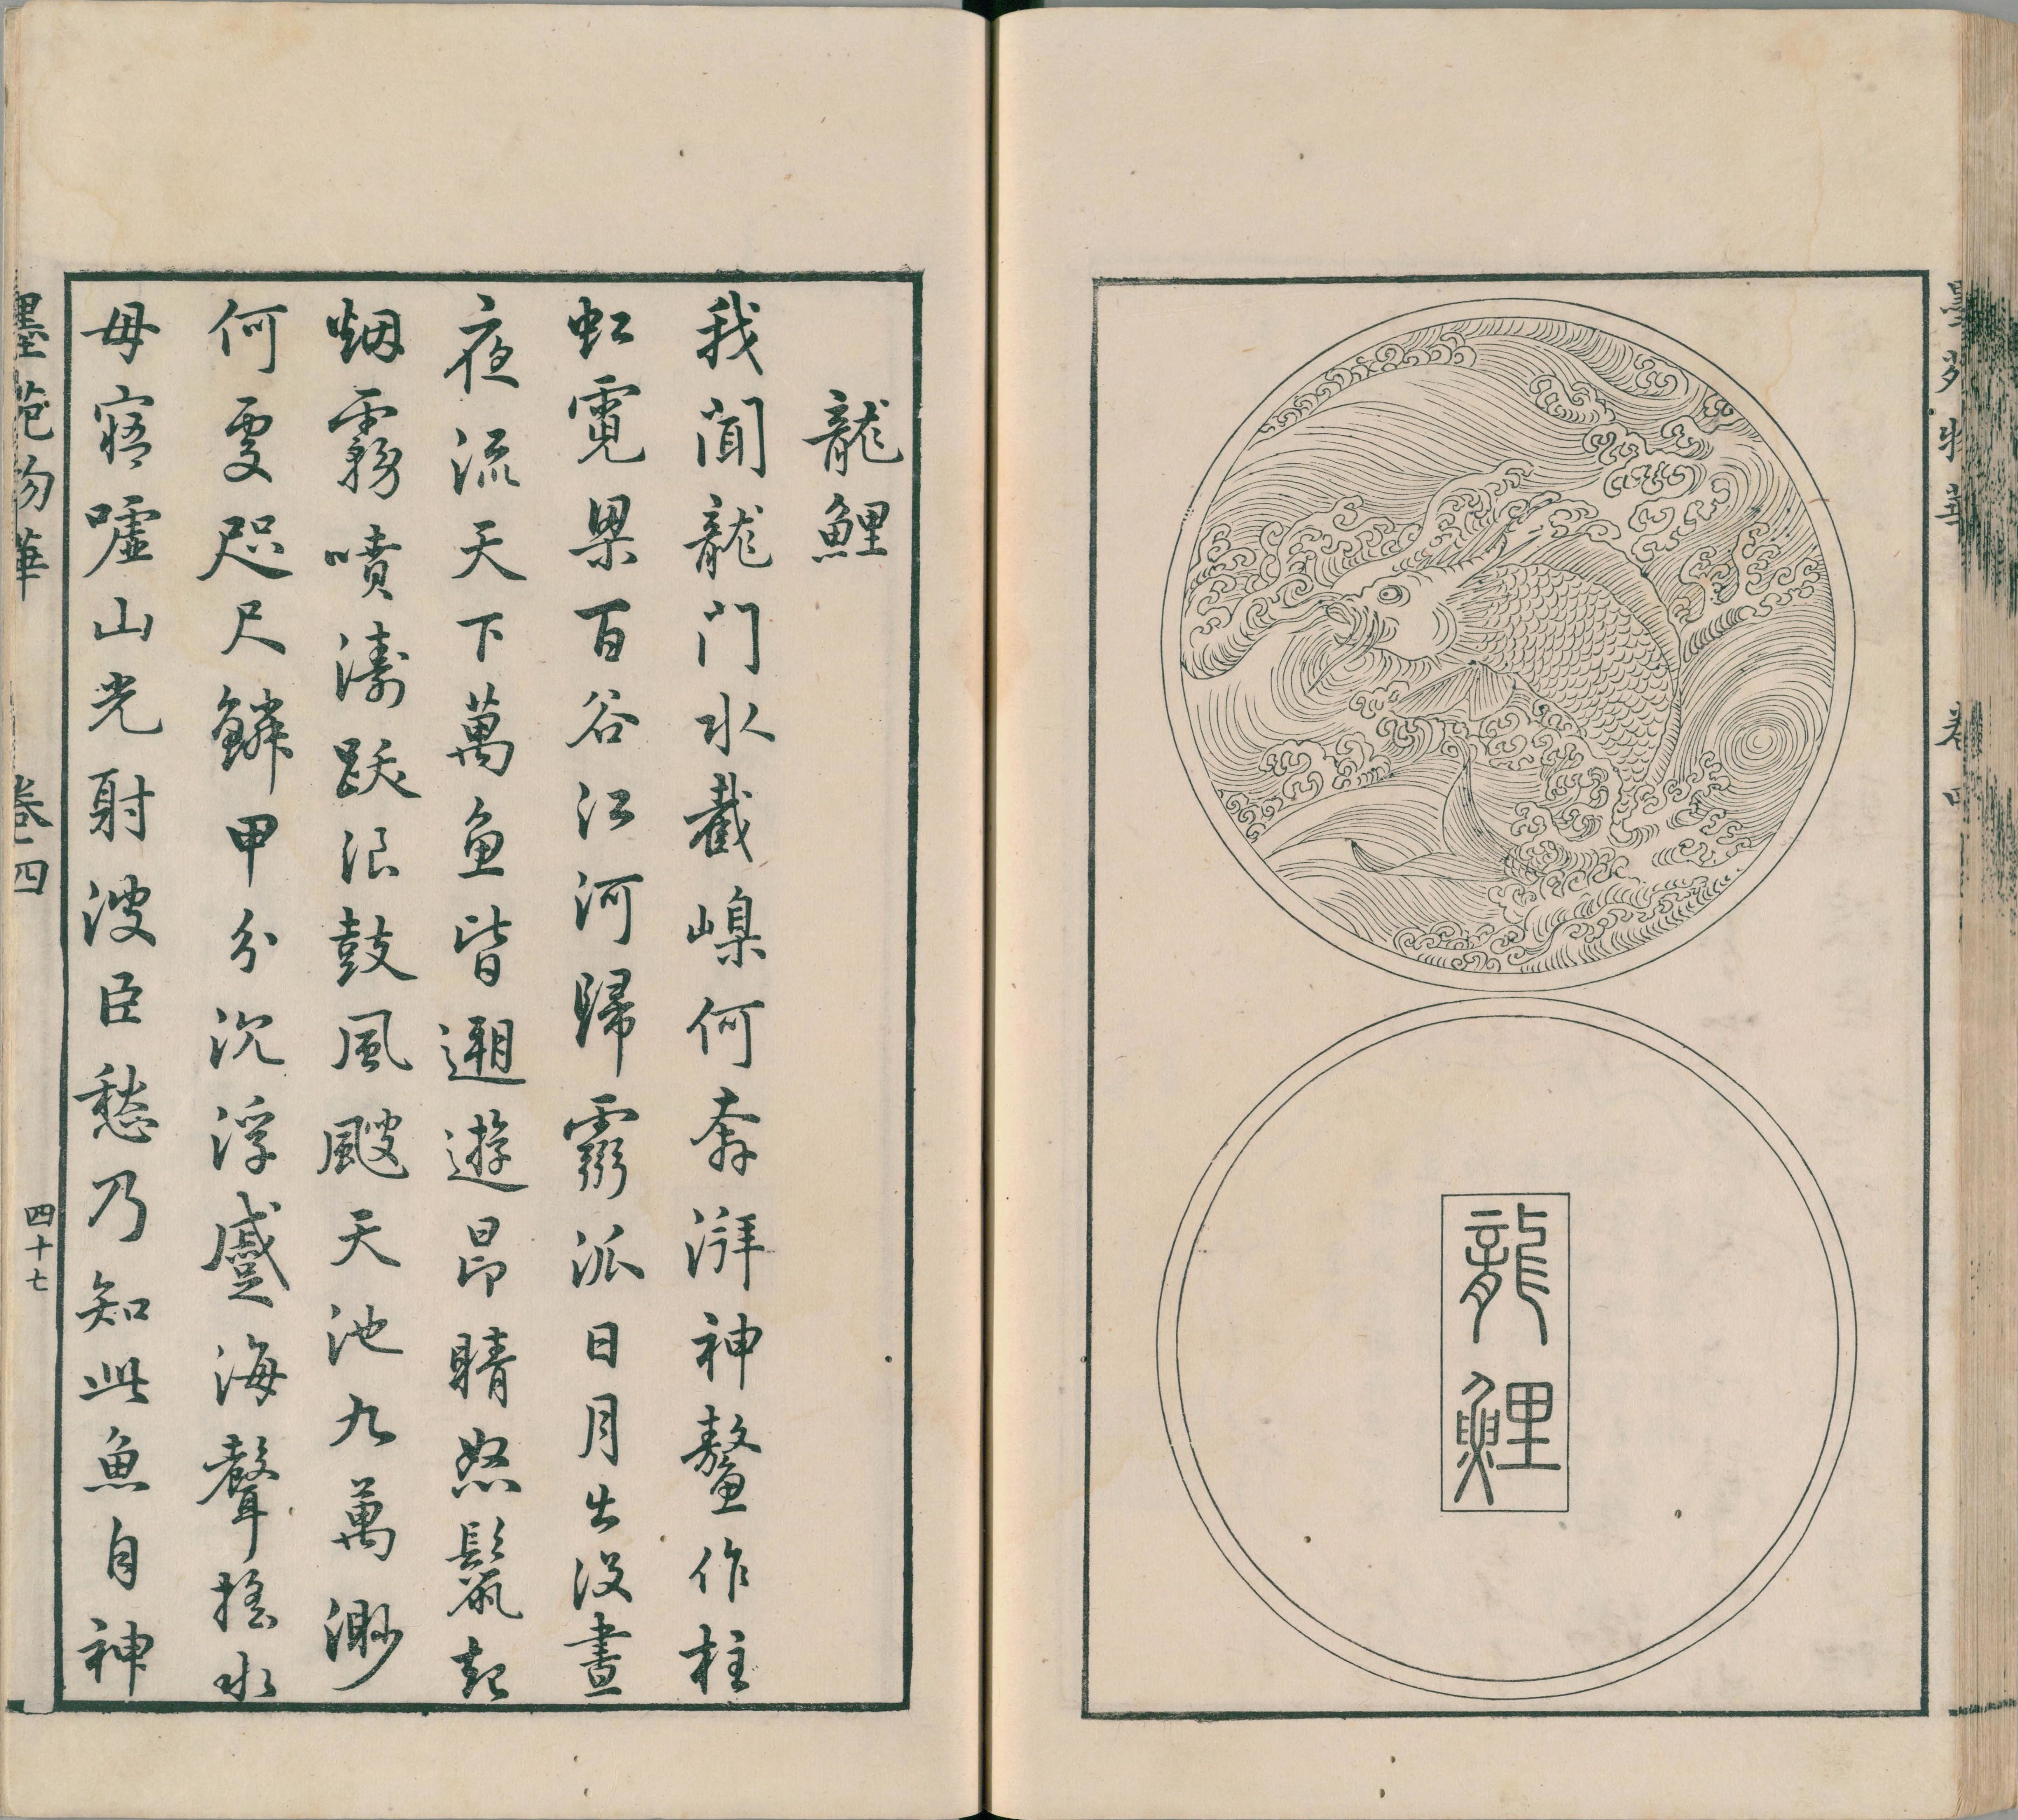 墨苑物華 卷四
龍鯉
龍鯉
我聞龍門水截嵲何奔湃神鰲作柱
虹霓梁百谷江河歸派日月出没晝
夜流天下萬魚皆遡遊昂睛怒鬣起
烟霧噴濤跃浪鼓風颼天池九萬渺
何處咫尺鱗甲分沉浮蹙海聲搖水
母寤嘘山光射波臣愁乃知此魚自神
墨苑物華 卷四 四十七